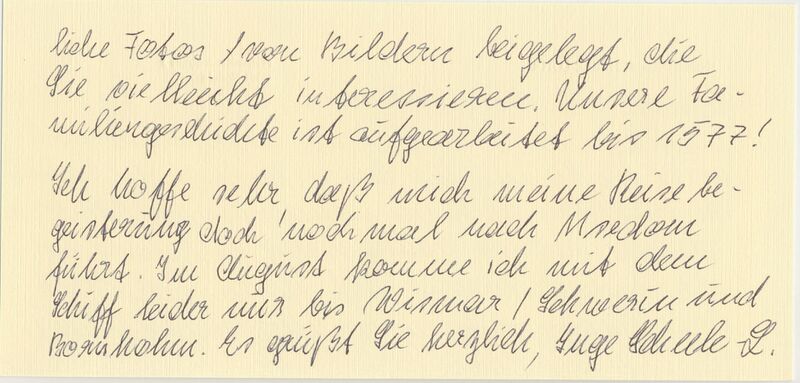 liche Fotos / von Bildern beigelegt, die
Sie vielleicht interessieren. Unsere Fa-
miliengeschichte ist aufgearbeitet bis 1577!
Ich hoffe sehr, daß mich meine Reisebe-
geisterung doch nochmal nach Usedom
führt. Im August komme ich mit dem
Schiff leider nur bis Wismar / Schwerin und
Bornholm. Es grüßt Sie herzlich, Inge Scheele-L.